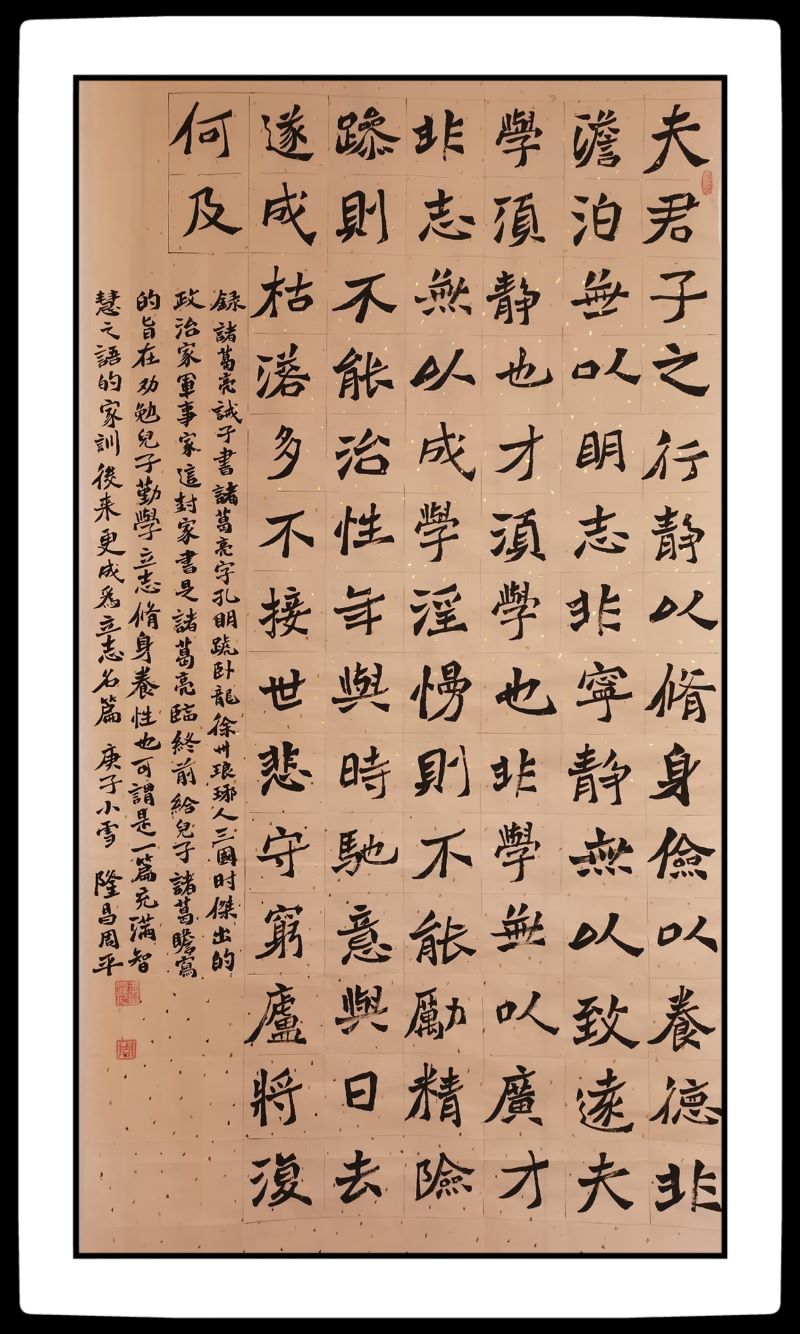 夫君子之行静以脩身儉以養德非
澹泊無以明志非寧静無以致遠夫
學須静也才須學也非學無以廣才
非志無以成學淫慢則不能勵精險
躁則不能治性年與時馳意與日去
遂成枯落多不接世悲守窮廬將復
何及
録諸葛亮誡子書諸葛亮字孔明號卧龍徐州琅琊人三國时傑出的
政治家軍事家這封家書是諸葛亮臨終前給兒子諸葛瞻寫
的旨在劝勉兒子勤學立志脩身養性也可謂是一篇充滿智
慧之語的家訓後来更成爲立志名篇 庚子小雪 隆昌周平